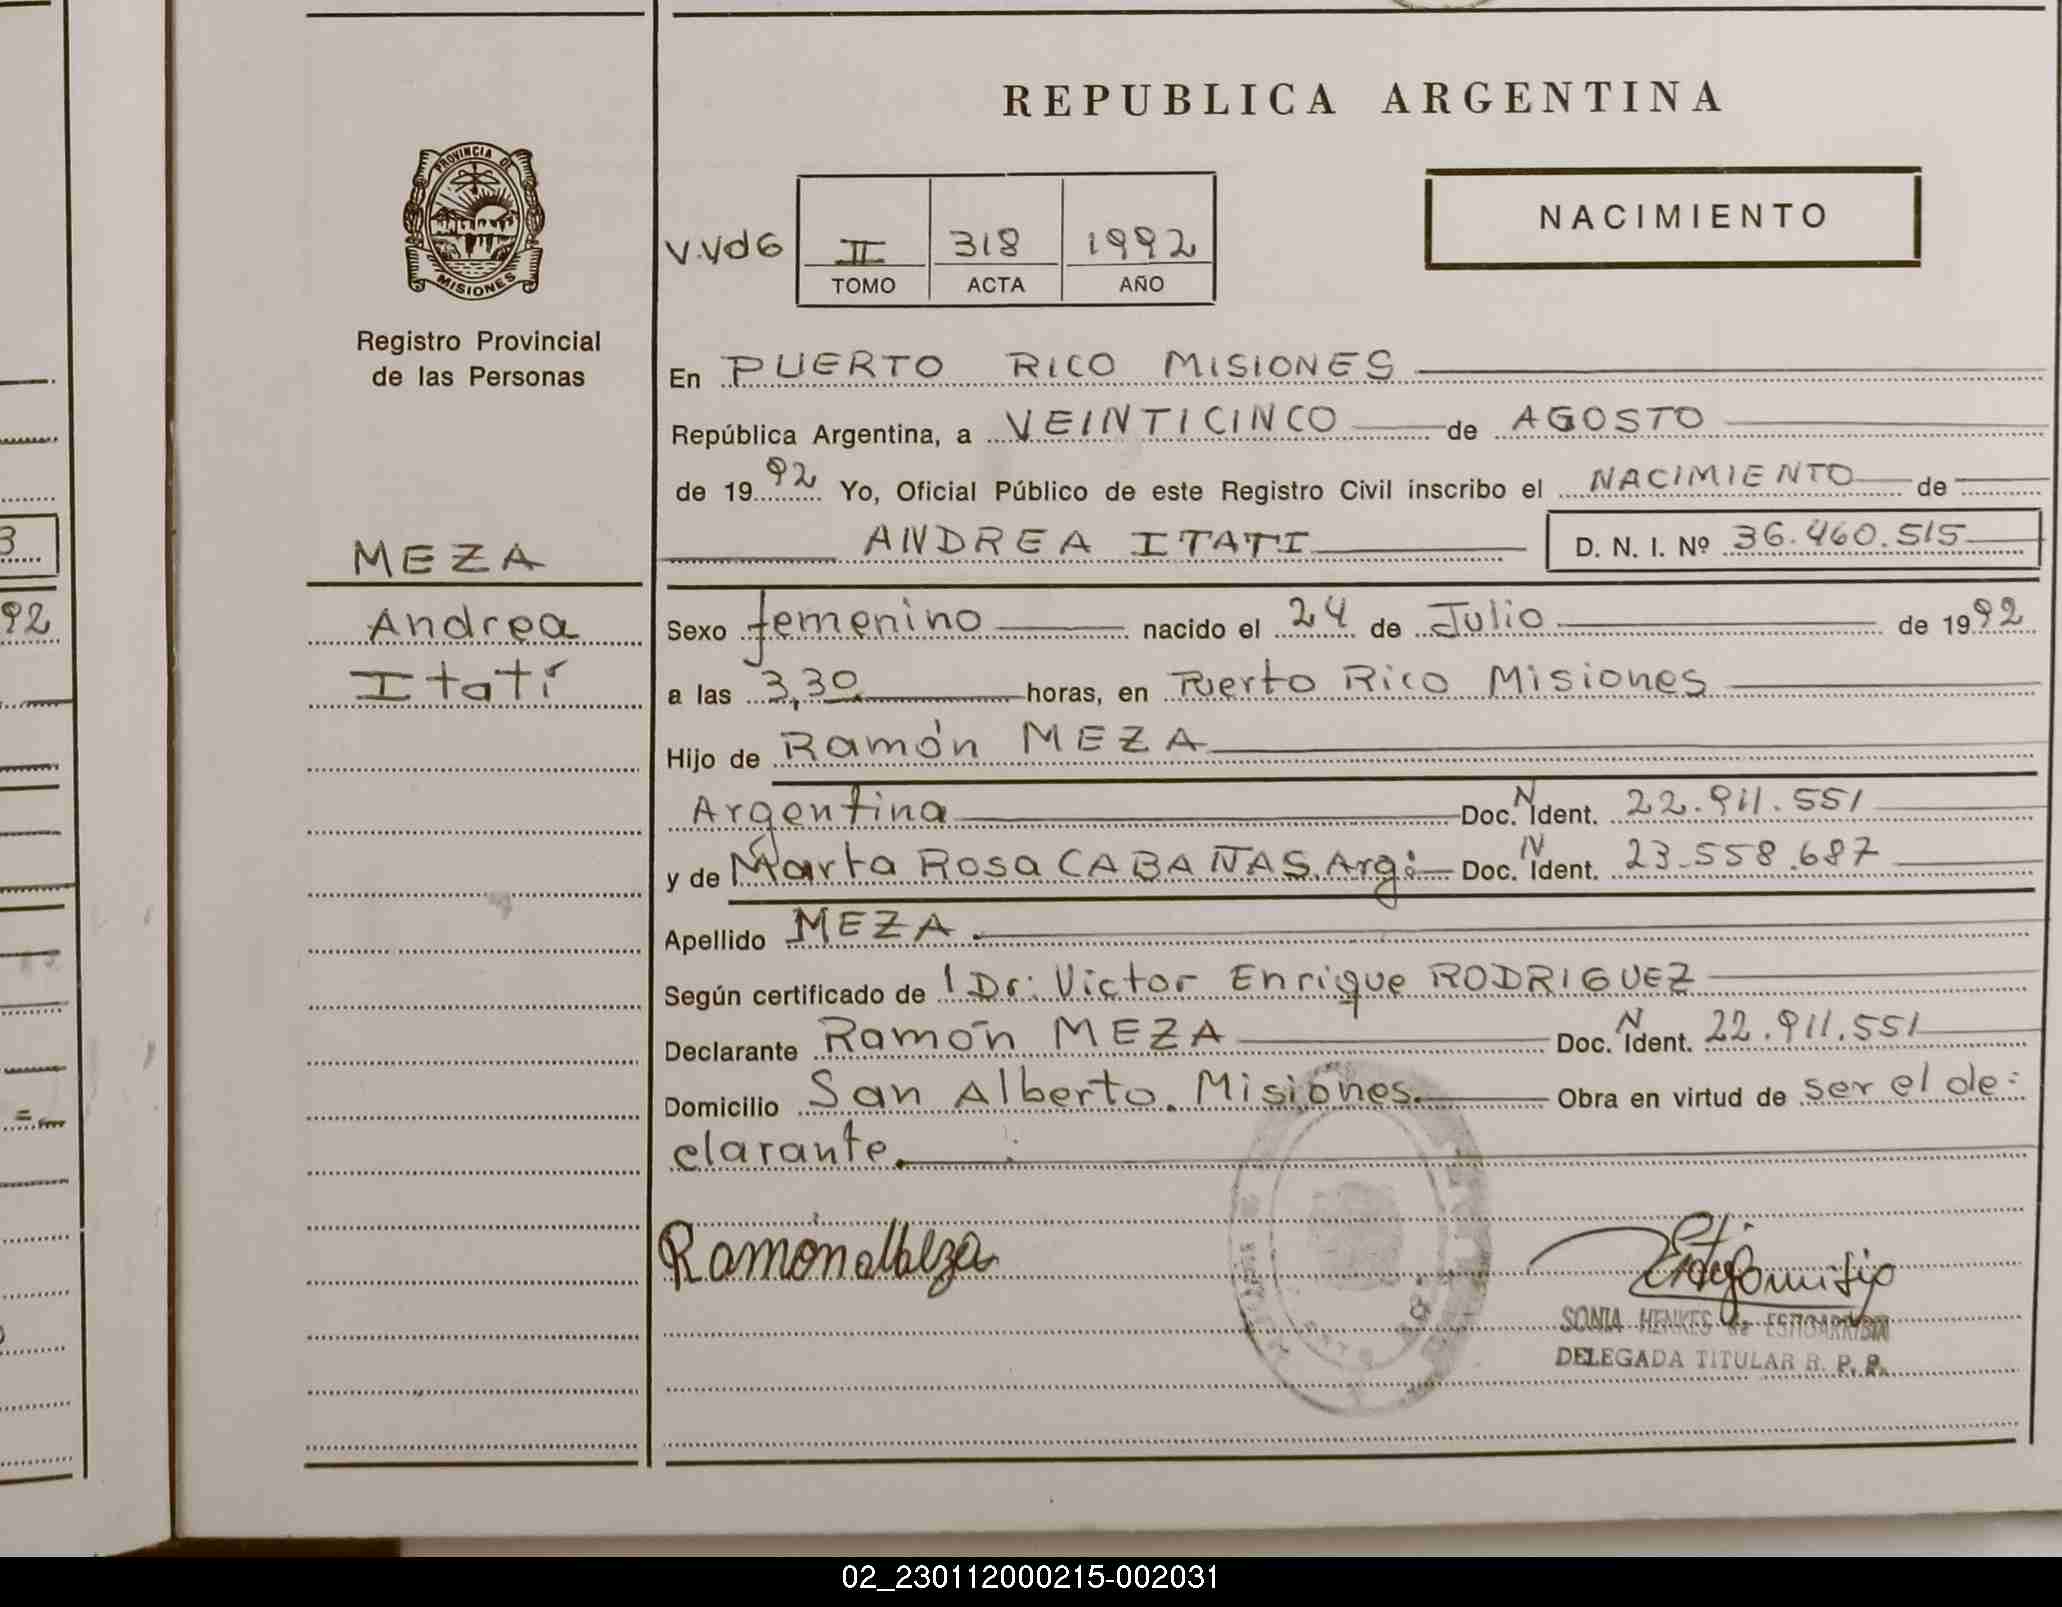 REPUBLICA ARGENTINA
PROVINCIA DE
MISIONES
Registro Provincial
de las Personas
V.Vd6
II 318 1992
TOMO ACTA AÑO
NACIMIENTO
En PUERTO RICO MISIONES
República Argentina, a VEINTICINCO de AGOSTO
de 1992 Yo, Oficial Público de este Registro Civil inscribo el NACIMIENTO de
ANDREA ITATI D. N. I. Nº 36.460.515
MEZA
Andrea
Itatí
Sexo femenino nacido el 24 de Julio de 1992
a las 3,30 horas, en Puerto Rico Misiones
Hijo de Ramón MEZA
Argentina Doc. N Ident. 22.911.551
y de Marta Rosa CABAÑAS. Arg: Doc. N Ident. 23.558.687
Apellido MEZA.
Según certificado de l Dr: Victor Enrique RODRIGUEZ
Declarante Ramón MEZA Doc. N Ident. 22.911.551
Domicilio San Alberto. Misiones. Obra en virtud de ser el de:
clarante.
Ramón Meza
SONIA HENKES de ESTIGARRIBIA
DELEGADA TITULAR R. P. P.
3
92
02_230112000215-002031